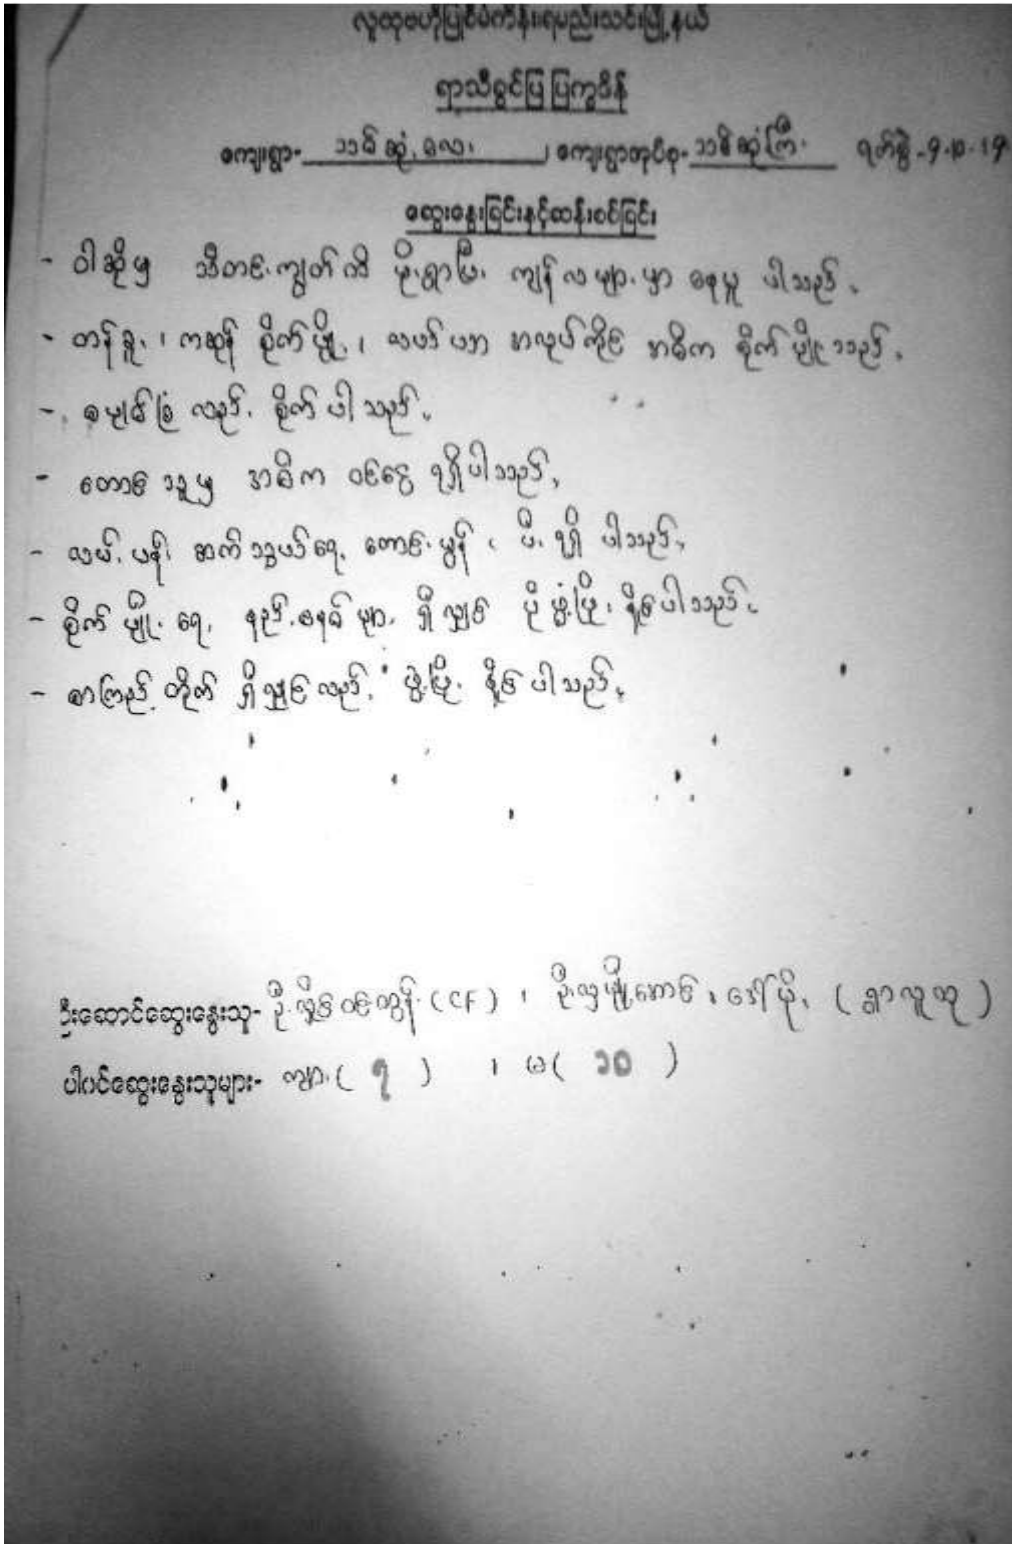 လူထုဗဟိုပြုစီမံကိန်း၊ရမည်းသင်းမြို့နယ်
ရာသီခွင်ပြ ပြက္ခဒိန်
ကျေးရွာ- သစ်ဆုံ့လေး ၊ ကျေးရွာအုပ်စု- သစ်ဆုံကြီး ရက်စွဲ - 9-10-19
ဆွေးနွေးခြင်းနှင့်ဆန်းစစ်ခြင်း
- ဝါဆိုမှ သီတင်းကျွတ်ထိ မိုးရွာပြီး ကျန်လများမှာ နေပူ ပါသည်။
- တန်ခူး၊ ကဆုန် စိုက်ပျိုး၊ လယ်ယာ အလုပ်ကိုင် အဓိက စိုက်ပျိုးသည်။
- စမျစ်ခြံ လည်း စိုက်ပါသည်။
- တောင်သူမှ အဓိက ဝင်ငွေ ရရှိပါသည်။
- လယ်ယာ ဆက်သွယ်ရေး ကောင်းမွန်၊ မီး ရရှိ ပါသည်။
- စိုက်ပျိုးရေး နည်းစနစ်များ ရှိလျှင် ပိုဖွံ့ဖြိုးနိုင်ပါသည်။
- စာကြည့်တိုက် ရှိလျှင်လည်း ဖွံ့ဖြိုး နိုင်ပါသည်။
ဦးဆောင်ဆွေးနွေးသူ- ဦးလှိုင်ဝင်းထွန်း (CF) ၊ ဦးလှမျိုးအောင်၊ ဒေါ်မိုး (ရွာလူထု)
ပါဝင်ဆွေးနွေးသူများ- ကျား (၇) ၊ မ (၁၀)